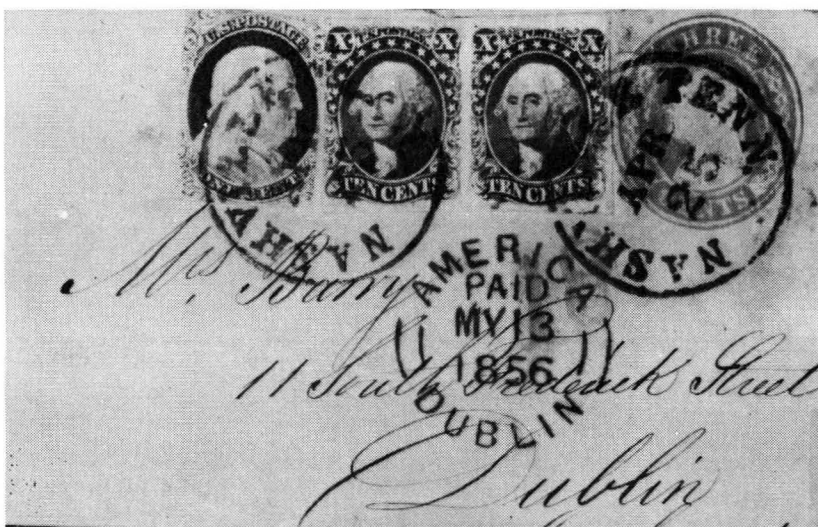 U.S. POSTAGE
ONE CENT
X U.S. POSTAGE X
TEN CENTS
X U.S. POSTAGE X
TEN CENTS
THREE
CENTS
NASH
TENN.
APR
NASH
AMERICA
PAID
MY 13
1856
DUBLIN
Mrs. Barry
11 South Frederick Street
Dublin